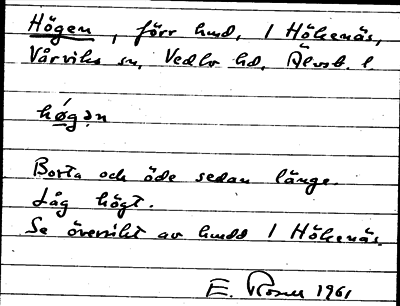 Högen, förr hmd, 1 Hökenäs,
Vårviks sn, Vedbo hd, Älvsb. l
høgən
Borta och öde sedan länge.
Låg högt.
Se översikt av hmdd 1 Hökenäs.
E. Rosén 1961